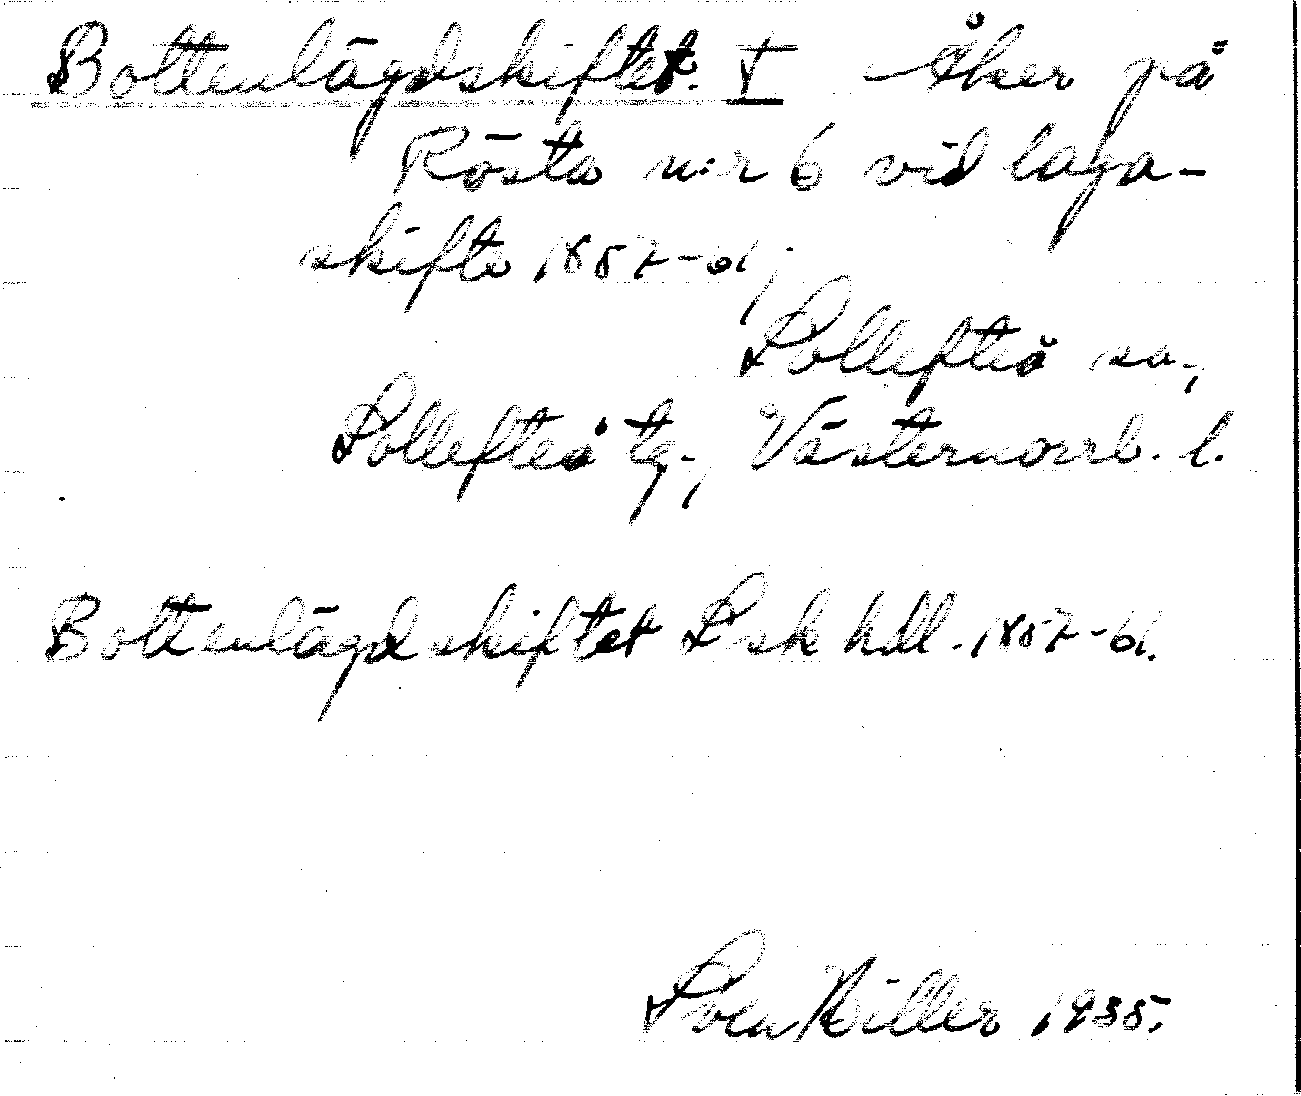 Bottenlägdskiftet. † Åker på
Rösta n:r 6 vid laga-
skifte 1857-61,
Sollefteå sn.,
Sollefteå tg., Västernorrl. l.
Bottenlägdskiftet L sk hdl. 1857-61.
Sven Hiller 1935.